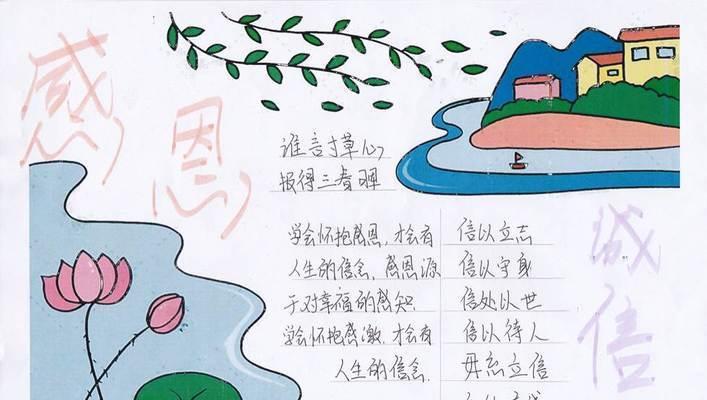 感恩
谁言寸草心
报得三春晖
学会怀抱感恩,才会有
人生的信念,感恩源
于对幸福的感知
学会怀抱感激.才会有
人生的信念.
诚信
信以立志
信以守身
信处以世
信以待人
毋忘立信